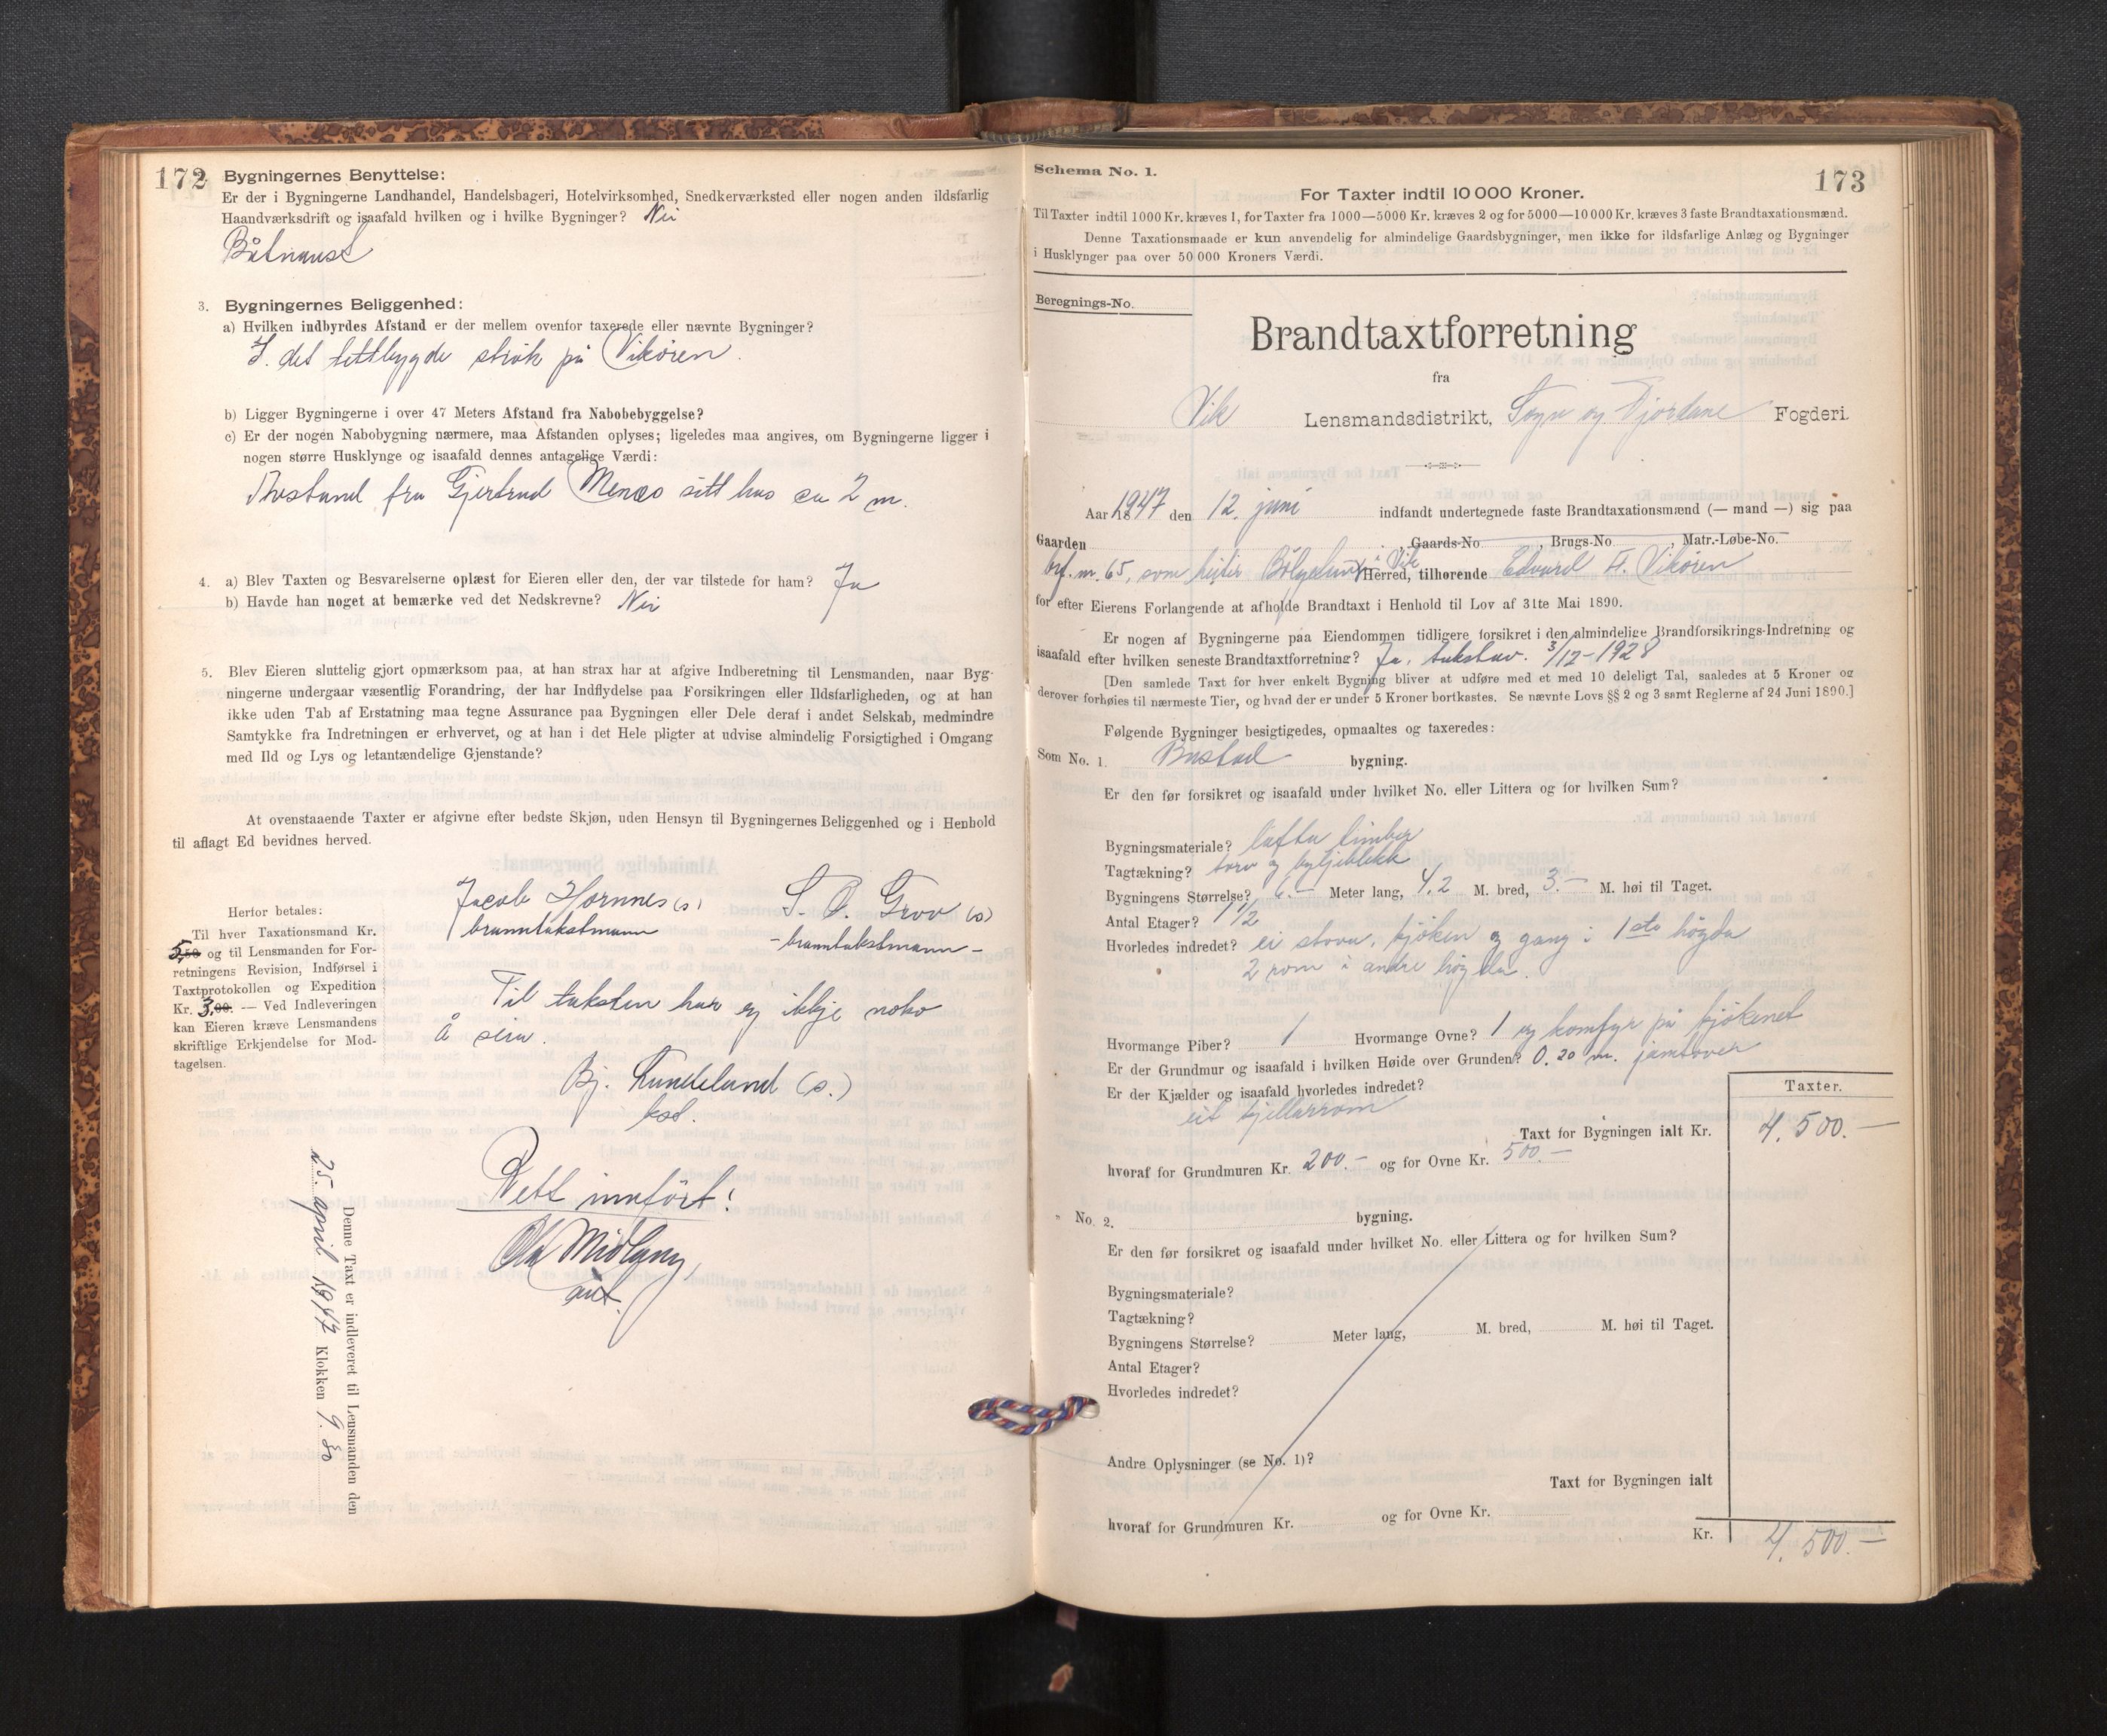 172
Bygningernes Benyttelse:
Er der i Bygningerne Landhandel, Handelsbageri, Hotelvirksomhed, Snedkerværksted eller nogen anden ildsfarlig
Haandværksdrift og isaafald hvilken og i hvilke Bygninger? Nei
Båtnaust
3. Bygningernes Beliggenhed:
a) Hvilken indbyrdes Afstand er der mellem ovenfor taxerede eller nævnte Bygninger?
I det tettbygde strøk på Vikøren.
b) Ligger Bygningerne i over 47 Meters Afstand fra Nabobebyggelse?
c) Er der nogen Nabobygning nærmere, maa Afstanden oplyses; ligeledes maa angives, om Bygningerne ligger i
nogen større Husklynge og isaafald dennes antagelige Værdi:
Avstand fra Gjertrud sitt hus ca 2 m.
4. a) Blev Taxten og Besvarelserne oplæst for Eieren eller den, der var tilstede for ham? Ja
b) Havde han noget at bemærke ved det Nedskrevne? Nei
5. Blev Eieren sluttelig gjort opmærksom paa, at han strax har at afgive Indberetning til Lensmanden, naar Byg-
ningerne undergaar væsentlig Forandring, der har Indflydelse paa Forsikringen eller Ildsfarligheden, og at han
ikke uden Tab af Erstatning maa tegne Assurance paa Bygningen eller Dele deraf i andet Selskab, medmindre
Samtykke fra Indretningen er erhvervet, og at han i det Hele pligter at udvise almindelig Forsigtighed i Omgang
med Ild og Lys og letantændelige Gjenstande?
At ovenstaaende Taxter er afgivne efter bedste Skjøn, uden Hensyn til Bygningernes Beliggenhed og i Henhold
til aflagt Ed bevidnes herved.
Jacob Hornnes (s) S. O. Grov (s)
branntakstmann -branntakstmann-
Herfor betales:
Til hver Taxationsmand Kr.
5, og til Lensmanden for For-
retningens Revision, Indførsel i
Taxtprotokollen og Expedition
Kr. 3,00. — Ved Indleveringen
kan Eieren kræve Lensmandens
skriftlige Erkjendelse for Mod-
tagelsen.
Til taksten har eg ikkje noko
å seia.
Bj. (s.)
Rett innført:
Denne Taxt er indleveret til Lensmanden den
25. april 1947 Klokken 9.30
Schema No. 1.
173
For Taxter indtil 10 000 Kroner.
Til Taxter indtil 1000 Kr. kræves 1, for Taxter fra 1000—5000 Kr. kræves 2 og for 5000—10 000 Kr. kræves 3 faste Brandtaxationsmænd.
Denne Taxationsmaade er kun anvendelig for almindelige Gaardsbygninger, men ikke for ildsfarlige Anlæg og Bygninger
i Husklynger paa over 50 000 Kroners Værdi.
Beregnings-No.
Brandtaxtforretning
fra
Vik Lensmandsdistrikt, Sogn og Fjordane Fogderi.
Aar 1947 den 12. juni indfandt undertegnede faste Brandtaxationsmænd (— mand —) sig paa
Gaarden , Gaards-No. , Brugs-No. , Matr.-Løbe-No.
brf. nr. 65, som heiter i Vik Herred, tilhørende Edvard A. Vikøren
for efter Eierens Forlangende at afholde Brandtaxt i Henhold til Lov af 31te Mai 1890.
Er nogen af Bygningerne paa Eiendommen tidligere forsikret i den almindelige Brandforsikrings-Indretning og
isaafald efter hvilken seneste Brandtaxtforretning? Ja, takstav. 3/12-1928
[Den samlede Taxt for hver enkelt Bygning bliver at udføre med et med 10 deleligt Tal, saaledes at 5 Kroner og
derover forhøies til nærmeste Tier, og hvad der er under 5 Kroner bortkastes. Se nævnte Lovs §§ 2 og 3 samt Reglerne af 24 Juni 1890.]
Følgende Bygninger besigtigedes, opmaaltes og taxeredes:
Som No. 1. Bustad bygning.
Er den før forsikret og isaafald under hvilket No. eller Littera og for hvilken Sum?
Bygningsmateriale? lafta timber
Tagtækning? torv og bylgjeblekk
Bygningens Størrelse? 6.- Meter lang, 4,2 M. bred, 3.- M. høi til Taget.
Antal Etager? 1 1/2
Hvorledes indredet? ei stova, kjøken og gang i 1ste høgda
2 rom i andre høgda.
Hvormange Piber? 1 Hvormange Ovne? 1 og komfyr på kjøkenet
Er der Grundmur og isaafald i hvilken Høide over Grunden? 0.20 m. jamtover
Er der Kjælder og isaafald hvorledes indredet?
eit kjellarrom
Taxter.
Taxt for Bygningen ialt Kr. 4.500.-
hvoraf for Grundmuren Kr. 200.- og for Ovne Kr. 500.-
" No. 2. bygning.
Er den før forsikret og isaafald under hvilket No. eller Littera og for hvilken Sum?
Bygningsmateriale?
Tagtækning?
Bygningens Størrelse? Meter lang, M. bred, M. høi til Taget.
Antal Etager?
Hvorledes indredet?
Andre Oplysninger (se No. 1)?
Taxt for Bygningen ialt
hvoraf for Grundmuren Kr. og for Ovne Kr.
Kr. 4.500.-